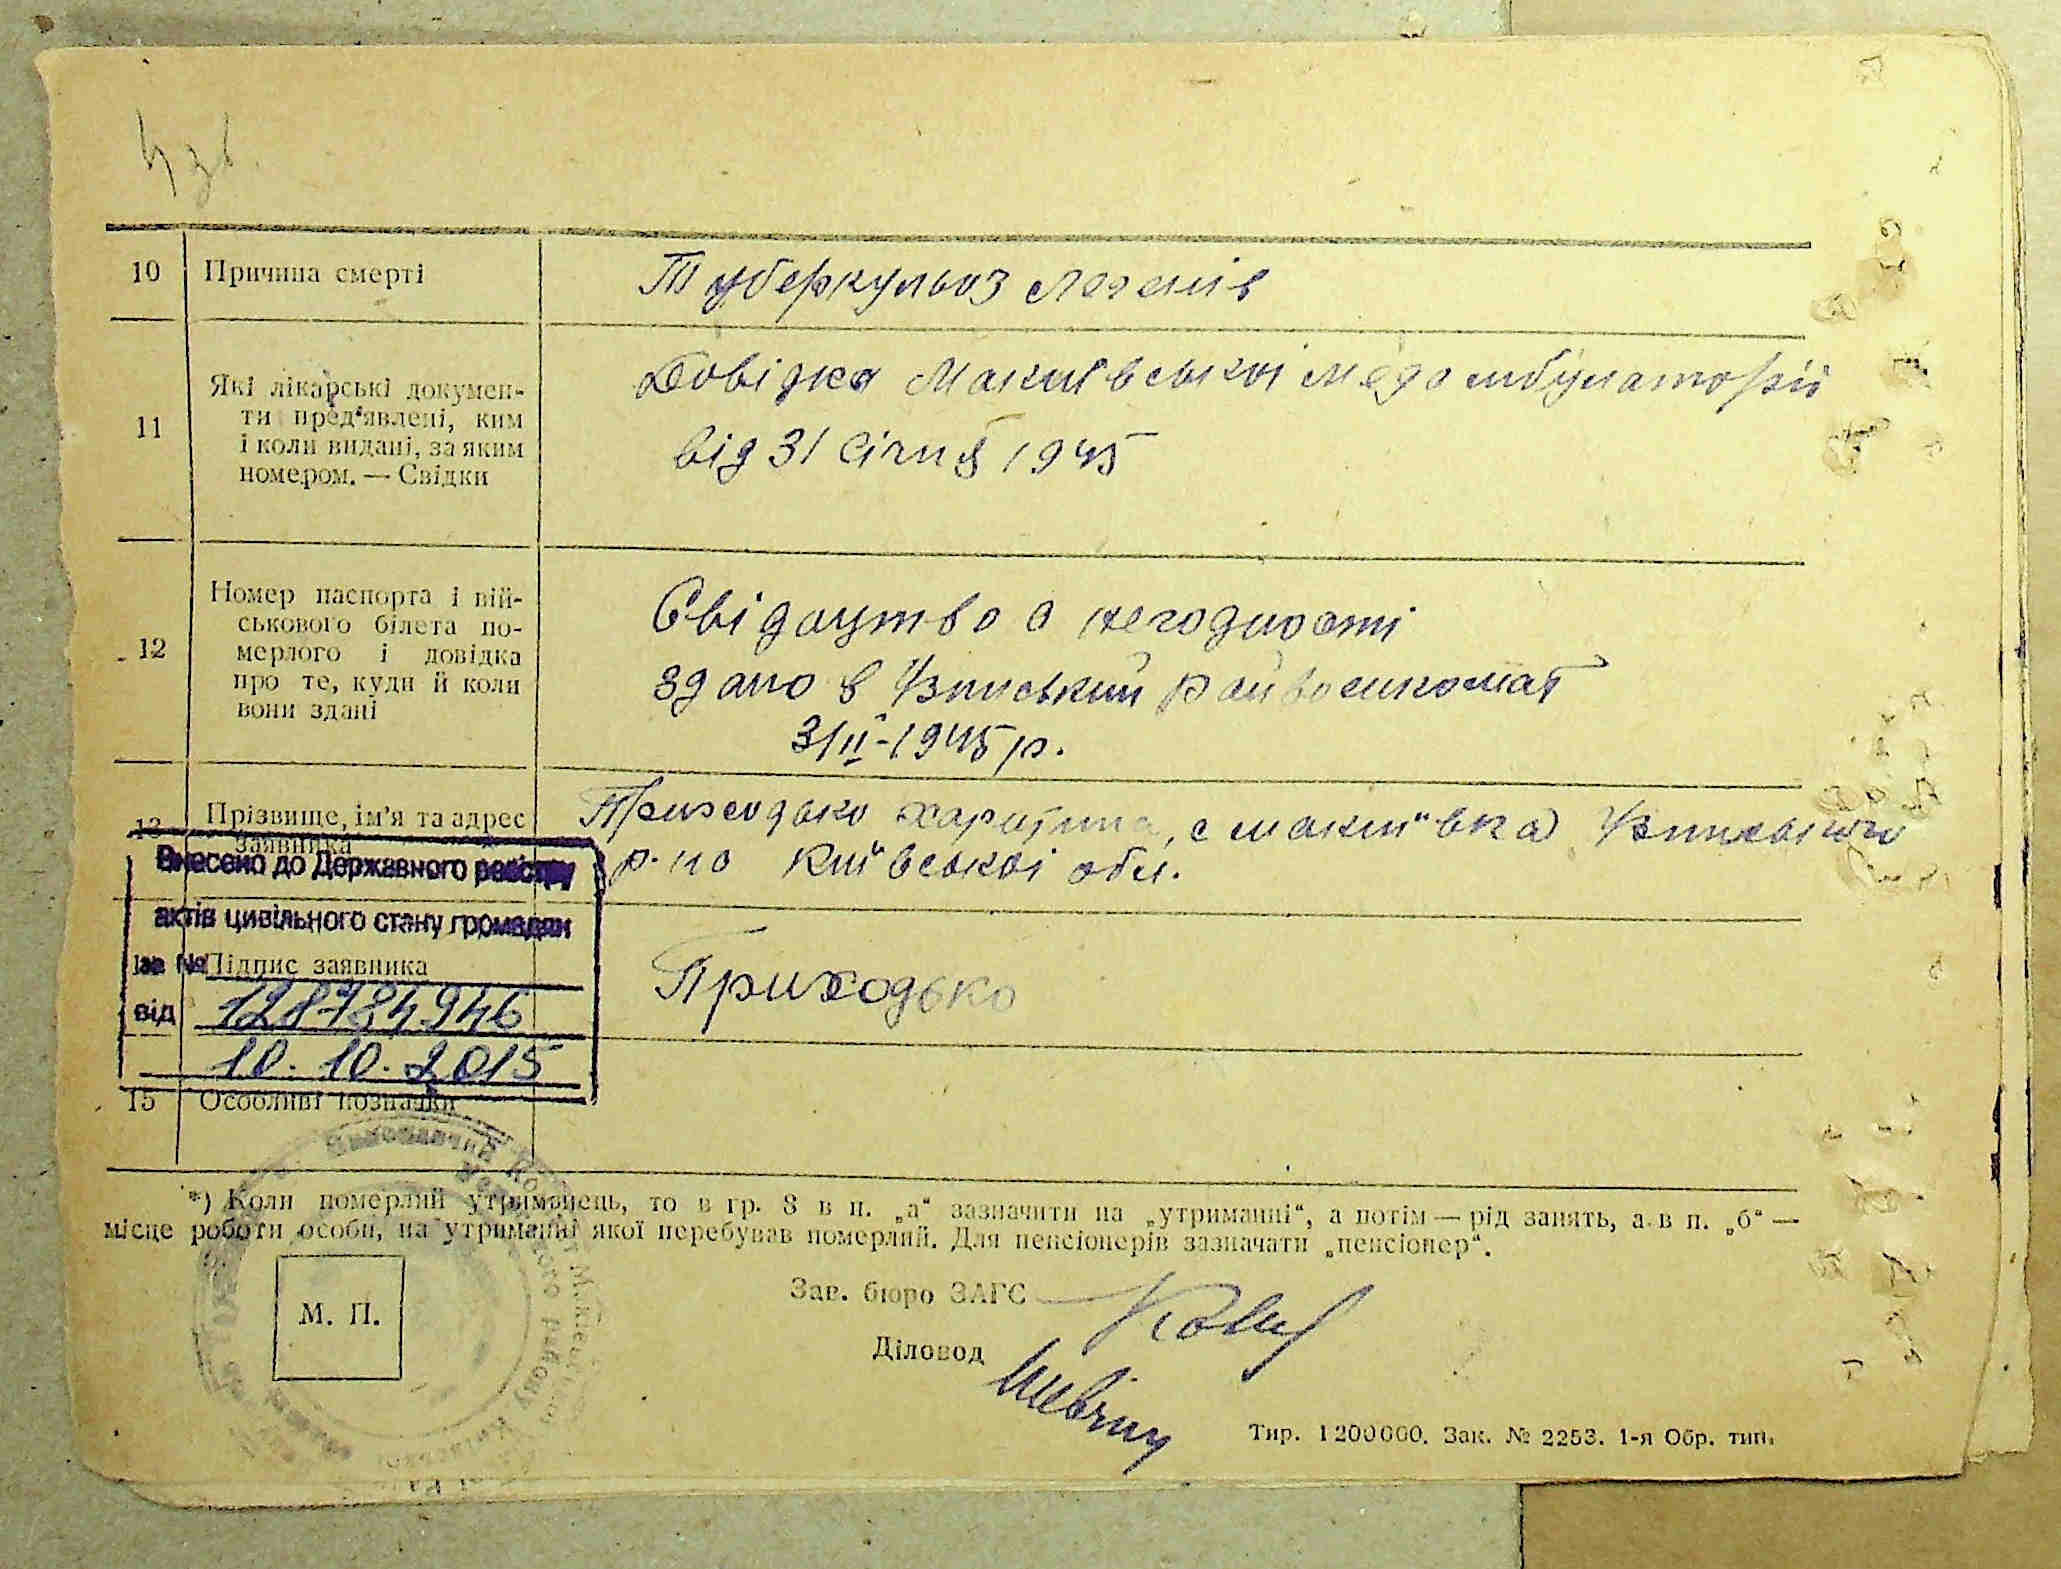 10 Причина смерті Туберкульоз легенів
11 Які лікарські докумен-
ти пред'явлені, ким
і коли видані, за яким
номером. — Свідки
Довідка Макиївської медамбулаторії
від 31 січня 1945
12 Номер паспорта і вій-
ськового білета по-
мерлого і довідка
про те, куди й коли
вони здані
Свідоцтво о негодности
здано в райвоенкомат
3/II-1945 р.
13 Прізвище, ім'я та адрес
заявника
Приходько Харитина, с Макиївка
р-но Київської обл.
Внесено до Державного реєстру
актів цивільного стану громадян
за №
Підпис заявника Приходько
від 128784946
10.10.2015
15 Особливі позначки
*) Коли померлий утриманець, то в гр. 8 в п. „а“ зазначити на „утриманні“, а потім — рід занять, а в п. „б“ —
місце роботи особи, на утриманні якої перебував померлий. Для пенсіонерів зазначати „пенсіонер“.
М. П.
Зав. бюро ЗАГС
Діловод
Тир. 1200000. Зак. № 2253. 1-я Обр. тип.